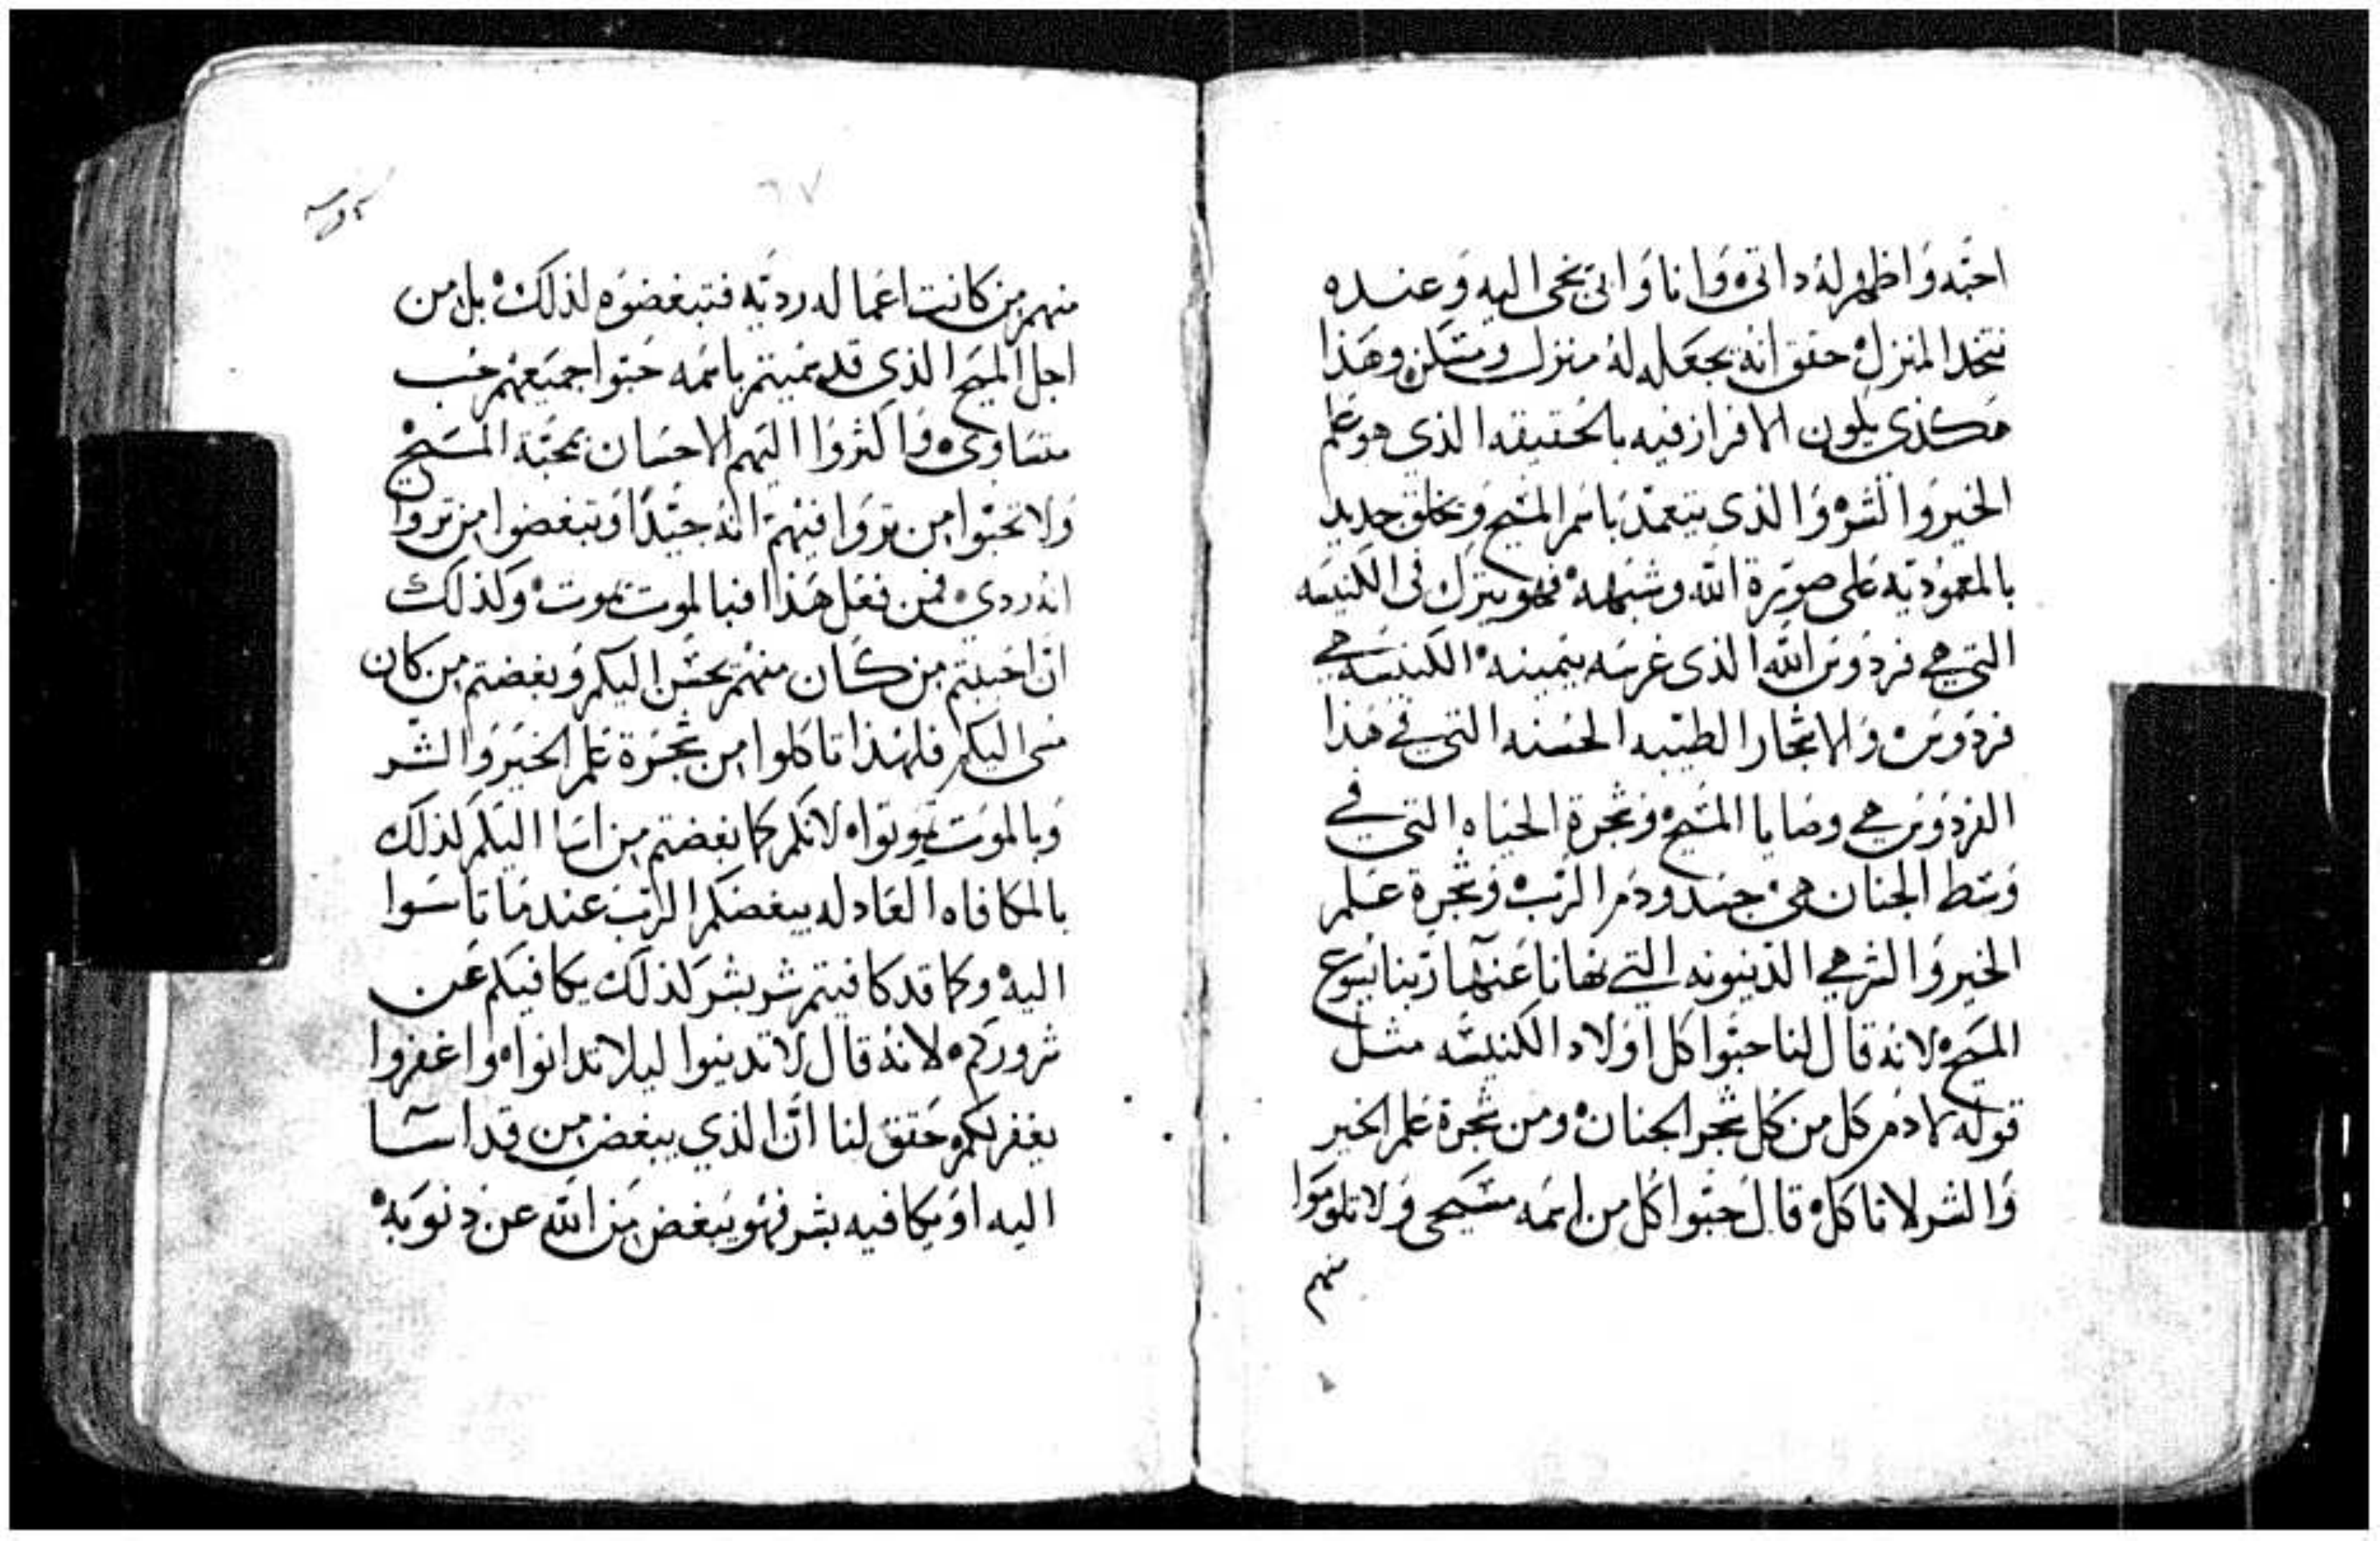 احبه واظهر له داتي وانا واتي نجي اليه وعنده
نتخد المنزل حقق انه يجعله له منزل ومسكن وهذا
هكذي يكون الافراز فيه بالحقيقه الذي هو علم
الخير والشر والذي يتعمد باسم المسيح ويخلق جديد
بالمعموديه على صورة الله وشبهه فهو يترك في الكنيسه
التي هي فردوس الله الذي غرسه بيمينه الكنيسه هي
فردوس والاشجار الطيبه الحسنه التي في هذا
الفردوس هي وصايا المسيح وشجرة الحياه التي في
وسط الجنان هي جسد ودم الرب وشجرة علم
الخير والشر هي الدينونه التي نهانا عنها ربنا يسوع
المسيح لانه قال لنا حبوا كل اولاد الكنيسه مثل
قوله لادم كل من كل شجر الجنان ومن شجرة علم الخير
والشر لا تاكل قال حبوا كل من اسمه مسيحي ولا تلوموا
منهم
٦٧
منهم من كانت اعماله رديه فتبغضوه لذلك بل من
اجل المسيح الذي قد سميتم باسمه حبوا جميعهم حب
متساوي واكثروا اليهم الاحسان بمحبة المسيح
ولا تحبوا من تروا فيهم انه جيدا وتبغضوا من تروا
انه ردي فمن فعل هذا فبالموت يموت وكذلك
ان احببتم من كان منهم يحسن اليكم وبغضتم من كان
مسى اليكم فلهذا تاكلوا من شجرة علم الخير والشر
وبالموت تموتوا لانكم كما بغضتم من اسا اليكم لذلك
بالمكافاه العادله يبغضكم الرب عندما تاسوا
اليه وكما قد كافيتم شر بشر لذلك يكافيكم عن
شروركم لانه قال لا تدينوا ليلا تدانوا واغفروا
يغفر لكم حقق لنا ان الذي يبغض من قد اسا
اليه او يكافيه بشر فهو يبغض من الله عن دنوبه